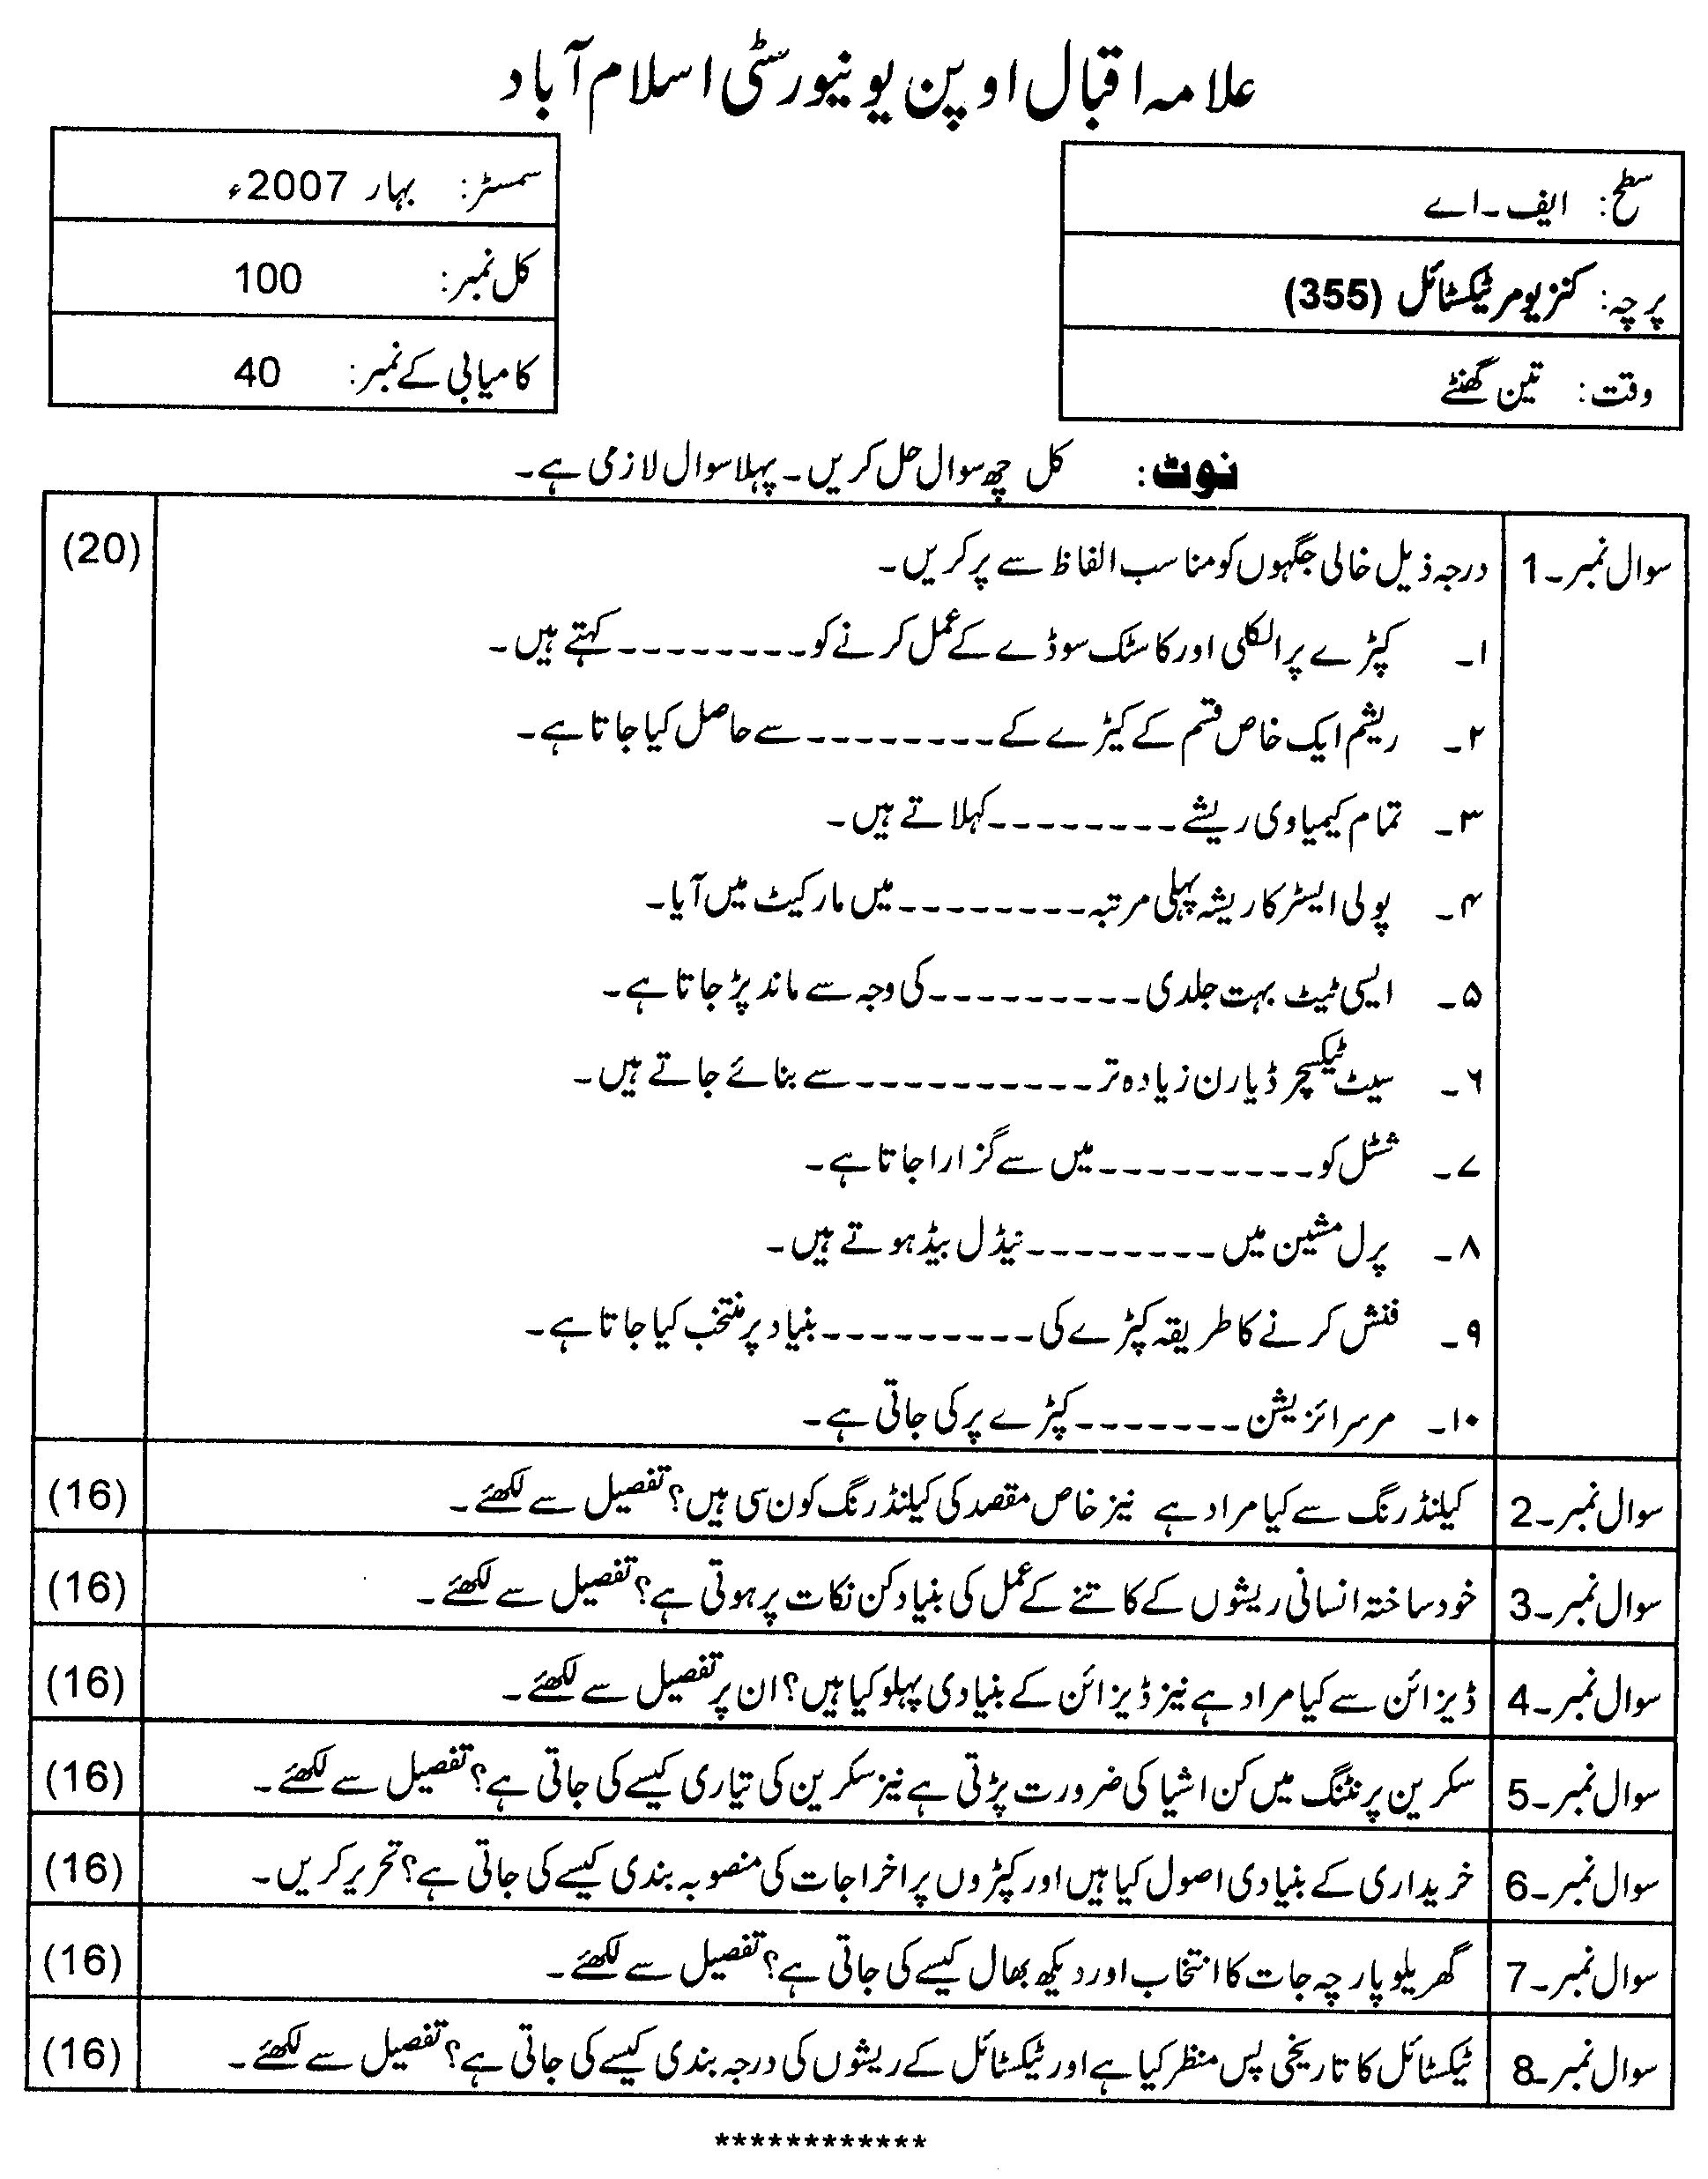 علامہ اقبال اوپن یونیورسٹی اسلام آباد
سطح: ایف۔اے
پرچہ: کنزیومر ٹیکسٹائل (355)
وقت: تین گھنٹے
سمسٹر: بہار 2007ء
کل نمبر: 100
کامیابی کے نمبر: 40
نوٹ: کل چھ سوال حل کریں۔ پہلا سوال لازمی ہے۔
سوال نمبر۔1 درجہ ذیل خالی جگہوں کو مناسب الفاظ سے پر کریں۔ (20)
۱۔ کپڑے پر الکلی اور کاسٹک سوڈے کے عمل کرنے کو--------کہتے ہیں۔
۲۔ ریشم ایک خاص قسم کے کیڑے کے--------سے حاصل کیا جاتا ہے۔
۳۔ تمام کیمیاوی ریشے--------کہلاتے ہیں۔
۴۔ پولی ایسٹر کا ریشہ پہلی مرتبہ--------میں مارکیٹ میں آیا۔
۵۔ ایسی ٹیٹ بہت جلدی---------کی وجہ سے ماند پڑ جاتا ہے۔
۶۔ سیٹ ٹیکسچرڈ یارن زیادہ تر----------سے بنائے جاتے ہیں۔
۷۔ شٹل کو---------میں سے گزارا جاتا ہے۔
۸۔ پرل مشین میں--------نیڈل بیڈ ہوتے ہیں۔
۹۔ فنش کرنے کا طریقہ کپڑے کی---------بنیاد پر منتخب کیا جاتا ہے۔
۱۰۔ مرسرائزیشن-------کپڑے پر کی جاتی ہے۔
سوال نمبر۔2 کیلنڈرنگ سے کیا مراد ہے نیز خاص مقصد کی کیلنڈرنگ کون سی ہیں؟ تفصیل سے لکھئے۔ (16)
سوال نمبر۔3 خود ساختہ انسانی ریشوں کے کاتنے کے عمل کی بنیاد کن نکات پر ہوتی ہے؟ تفصیل سے لکھئے۔ (16)
سوال نمبر۔4 ڈیزائن سے کیا مراد ہے نیز ڈیزائن کے بنیادی پہلو کیا ہیں؟ ان پر تفصیل سے لکھئے۔ (16)
سوال نمبر۔5 سکرین پرنٹنگ میں کن اشیا کی ضرورت پڑتی ہے نیز سکرین کی تیاری کیسے کی جاتی ہے؟ تفصیل سے لکھئے۔ (16)
سوال نمبر۔6 خریداری کے بنیادی اصول کیا ہیں اور کپڑوں پر اخراجات کی منصوبہ بندی کیسے کی جاتی ہے؟ تحریر کریں۔ (16)
سوال نمبر۔7 گھریلو پارچہ جات کا انتخاب اور دیکھ بھال کیسے کی جاتی ہے؟ تفصیل سے لکھئے۔ (16)
سوال نمبر۔8 ٹیکسٹائل کا تاریخی پس منظر کیا ہے اور ٹیکسٹائل کے ریشوں کی درجہ بندی کیسے کی جاتی ہے؟ تفصیل سے لکھئے۔ (16)
************